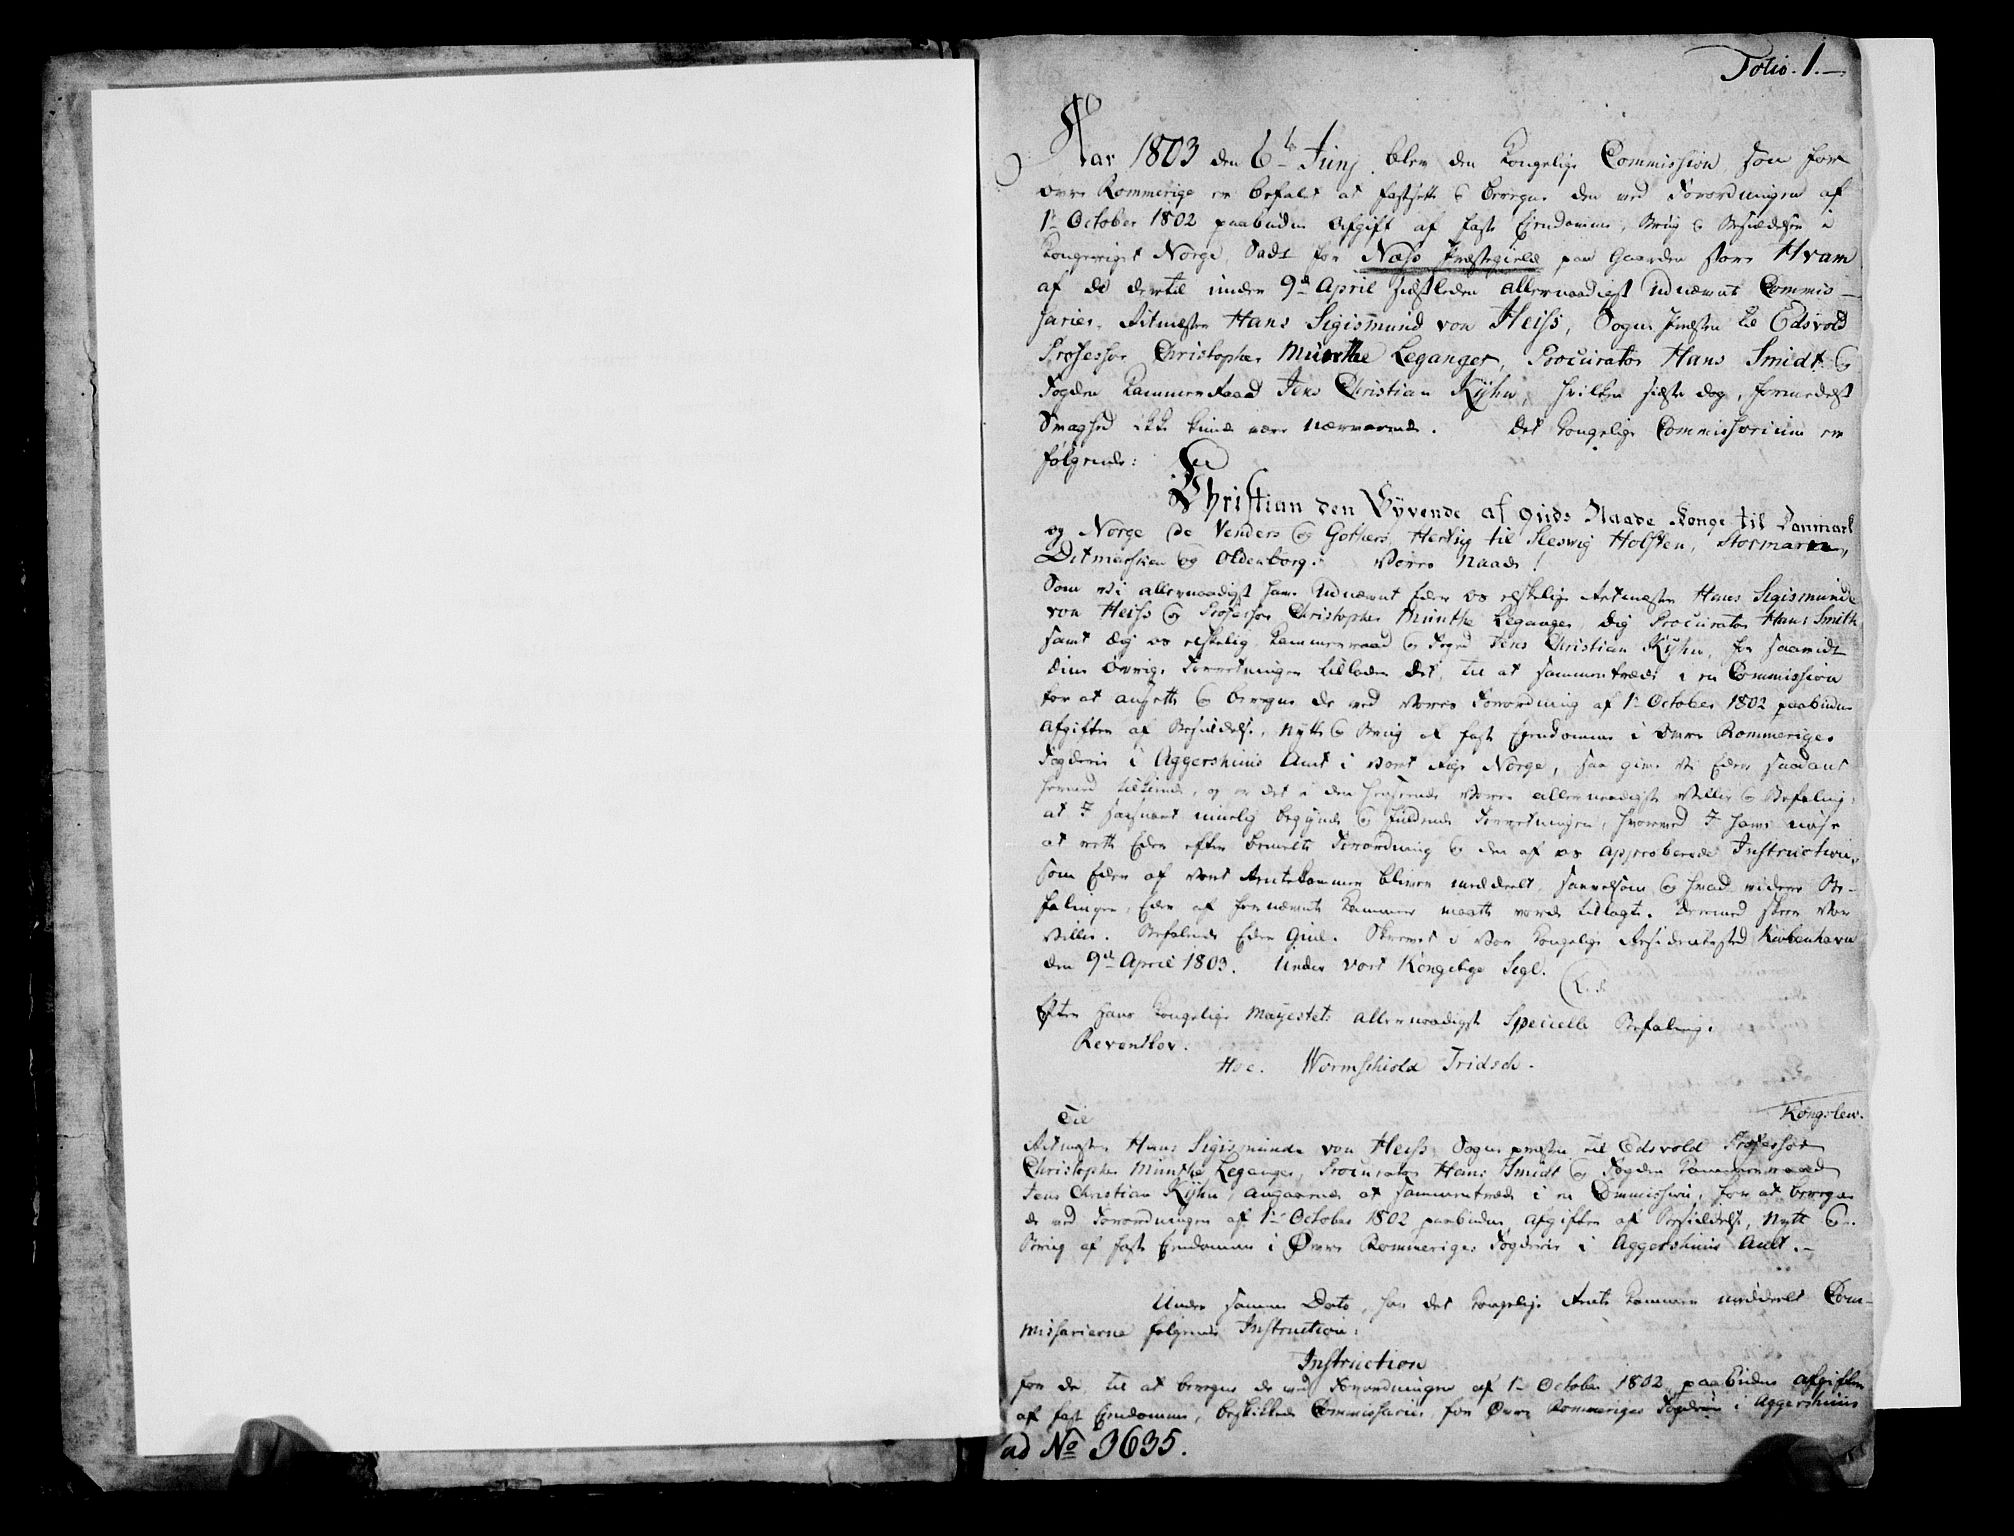 Folio. 1.
Aar 1803 den 6te Junj blev den Kongelige Commission som for
Øvre Rommerige er befalet at fastsette & beregne den ved Forordningen af
1te October 1802 paabudne Afgift af faste Ejendomme, Brug & Besiddelse i
Kongeriget Norge, Sadt for Næss Præstegield paa Gaarden store Hvam
af de dertil under 9de April sidstleden allernaadigst udnævnte Commis-
sarier, Ritmester Hans Sigismund von Heiss, Sogne Præsten til Edsvold
Professor Christopher Munthe Leganger, Procurator Hans Smidt &
Fogden Kammerraad Jens Christian Kyhn, hvilken sidste dog, formedelst
Svaghed ikke kunde være nærværende. Det Kongelige Commissorium er
følgende:
Christian den Syvende af Guds Naade Konge til Danmark
og Norge de Venders og Gothers, Hertug til Slesvig Holsten, Stormarn,
Ditmarsken og Oldenborg. Vores Naade!
Som Vi allernaadigst have udnævnt Eder os elskelige Ritmester Hans Sigismunde
von Heiss & Professor Christopher Munthe Leganger, Dig Procurator Hans Smith
samt Dig os elskelig Kammerraad & Foged Jens Christian Kyhn, for saavidt
dine øvrige Forretninger tillader det, til at sammentræde i en Commission
for at ansette & beregne de ved Vores Forordning af 1te October 1802 paabudne
Afgifter af Besiddelse, Nytte & Brug af faste Ejendomme i Øvre Rommeriges
Fogderie i Aggershuus Amt i Vort Rige Norge, saa give Vi Eder saadant
herved tilkiende, og er det i den Henseende Vores allernaadigste Villie & Befaling,
at I saasnart muelig begynde & fuldende Forretningen, hvorved I have nøje
at rette Eder efter bemelte Forordning & den af os approberede Instruction,
som Eder af Vort Rentekammer bliver meddeelt, saavelsom & hvad videre Be-
falinger, Eder af fornævnte Kammer maatte vorde tillagte. Dermed skeer Vor
Villie. Befalende Eder Gud. Skrevet i Vor Kongelige Residentzsted Kiøbenhavn
den 9de April 1803. Under Vort Kongelige Segl.
Efter Hans Kongelige Mayestets allernaadigste Specielle Befaling.
Reventlov.
Hoe. Wormskiold Fridsch.
Kongslew.
Til
Ritmester Hans Sigismunde von Heiss, Sogne præsten til Edsvold Professor
Christopher Munthe Leganger, Procurator Hans Smidt & Fogden Kammerraad
Jens Christian Kyhn, angaaende at sammentræde i en Commission, for at beregne
de ved Forordningen af 1te October 1802 paabudne Afgifter af Besiddelse, Nytte &
Brug af faste Ejendomme i Øvre Rommeriges Fogderie i Aggershuus Amt.
Under samme Dato, har det Kongelige Rente Kammer meddeelt Com-
missarierne følgende Instruction:
Instruction
for de, til at beregne de ved Forordningen af 1te October 1802 paabudne Afgifter
af faste Ejendomme, beskikkede Commissarier for Øvre Rommeriges Fogderie i Aggershuus
ad No 3635.